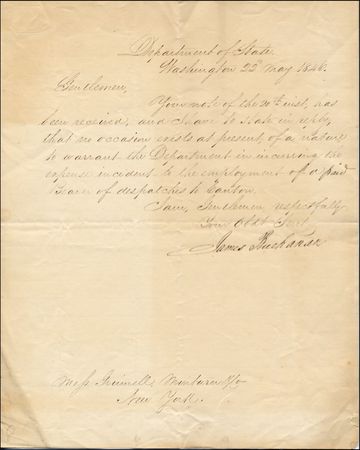 Department of State
Washington 22d May 1846.
Gentlemen,
Your note of the 20th inst. has
been received, and I have to state in reply,
that no occasion exists at present of a nature
to warrant the Department in incurring the
expense incident to the employment of a paid
Bearer of despatches to Canton.
I am, Gentlemen, respectfully
Your Obdt Servt
James Buchanan
Messrs Grinnell, Minturn & Co
New York.